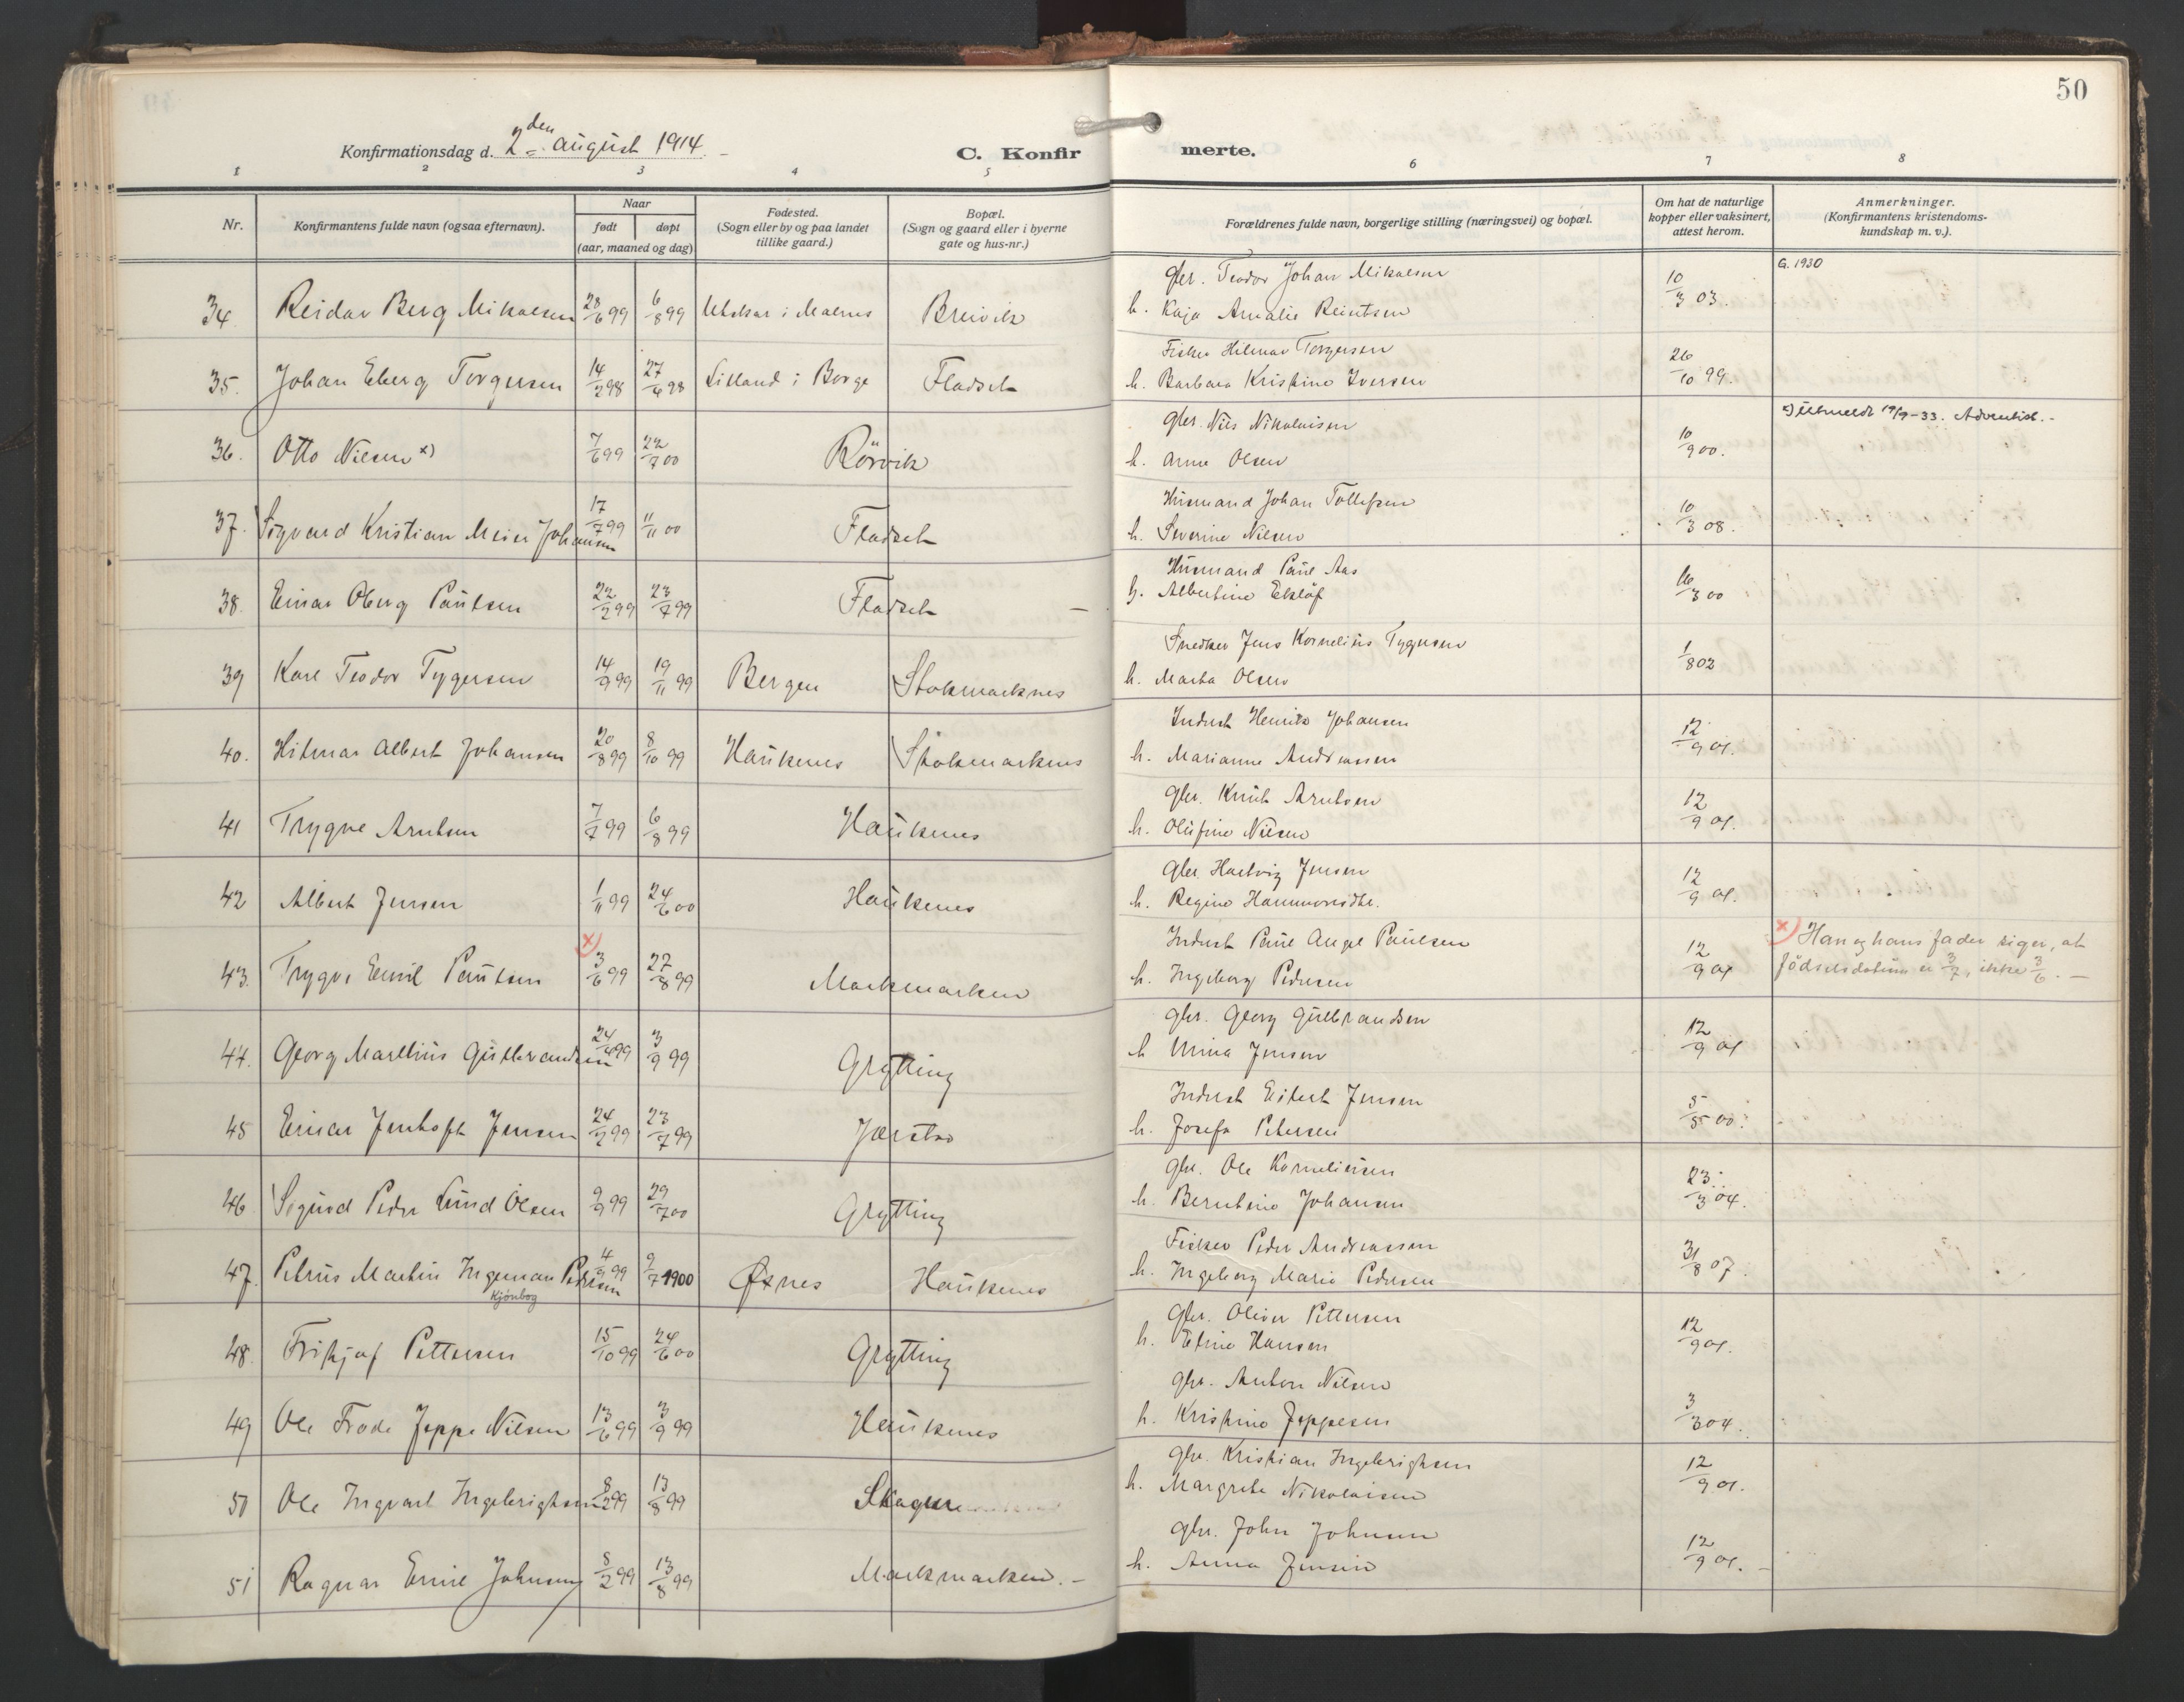 50
Konfirmationsdag d. 2den august 1914.
C. Konfirmerte.
1 2 3 4 5 6 7 8
Nr.
Konfirmantens fulde navn (ogsaa efternavn).
Naar
født døpt
(aar, maaned og dag)
Fødested.
(Sogn eller by og paa landet
tillike gaard.)
Bopæl.
(Sogn og gaard eller i byerne
gate og hus-nr.)
Forældrenes fulde navn, borgerlige stilling (næringsvei) og bopæl.
Om hat de naturlige
kopper eller vaksinert,
attest herom.
Anmerkninger.
(Konfirmantens kristendoms-
kundskap m. v.).
G. 1930
gbr. Teodor Johan Mikalsen
34. Reidar Berg Mikalsen 28/6 99 6/8 99 i Malnes Breivik h. Kaja Amalie Reintsen 10/3 03.
Fisker Hilmar Torgersen
35. Johan Eberg Torgersen 14/2 98 27/6 98 Lilland i Borge Fladset h. Barbara Kristine Iversen 26/10 99.
x) Utmeldt 19/9-33. Adventist.-
gbr. Nils Nikolaisen
36. Otto Nilsen x) 7/6 99 22/7 00 Rörvik h. Anne Olsen 10/9 00.
Husmand Johan Tollefsen
37. Sigvard Kristian Meier Johansen 17/7 99 11/11 00 Fladset h. Severine Nilsen 10/3 08.
Husmand Paul Aas
38. Einar Oberg Paulsen 22/2 99 23/7 99 Fladset h. Albertine Eklöf 16/3 00
Snedker Jens Kornelius Tygesen
39 Karl Teodor Tygesen 14/9 99 19/11 99 Bergen Stokmarknes h. Marta Olsen 1/8 02
Indust Henrik Johansen
40. Hilmar Albert Johansen 20/8 99 8/10 99 Haukenes Stokmarknes h. Marianne Andreassen 12/9 01.
gbr. Knut Arntsen
41 Trygve Arntsen 7/7 99 6/8 99 Haukenes h. Olufine Nilsen 12/9 01.
gbr. Hartvig Jensen
42 Albert Jensen 1/11 99 24/6 00 Haukenes h. Regine 12/9 01.
Indust Paul Angel Paulsen
x) Han og hans fader siger, at
43. Trygve Emil Paulsen x) 3/6 99 27/8 99 Markmarken h. Ingeborg Pedersen 12/9 01 födselsdatum er 3/7, ikke 3/6. —
gbr. Georg Gulbrandsen
44. Georg Martinus Gulbrandsen 24/4 99 3/9 99 Grytting h Mina Jensen 12/9 01
Indust Eilert Jensen
45 Einar Jentoft Jensen 24/2 99 23/7 99 Jörstad h. Josefa Petersen 5/5 00.
gbr. Ole Korneliusen
46. Sigurd Peder Lund Olsen 9/9 99 29/7 00 Grytting h. Berntine Johansen 23/3 04.
Fisker Peder Andreassen
47. Petrus Martin Ingeman Pedersen 4/9 99 9/7 1900 Øxnes Haukenes h. Ingeborg Marie Pedersen 31/8 07.
Kjönbog
gbr. Oliver Pettersen
48. Fritjof Pettersen 15/10 99 24/6 00 Grytting h. Eline Hansen 12/9 01.
gbr. Anton Nilsen
49 Ole Frode Jeppe Nilsen 13/6 99 3/9 99 Haukenes h. Kristine Jeppesen 3/3 04.
gbr. Kristian Ingebrigtsen
50 Ole Ingvart Ingebrigtsen 8/2 99 13/8 99 Skagen h. Margrete Nikolaisen 12/9 01.
gbr. John Johnsen
51 Ragnar Emil Johnsen 8/2 99 13/8 99 Markmarken.- h. Anna Jensen 12/9 01. -